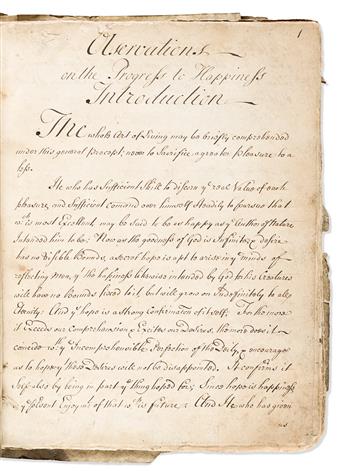 1
Observations
on the Progress to Happiness
Introduction
The whole Art of Living may be briefly comprehended
under this general precept; never to Sacrifice a greater pleasure to a
less.
He who has Sufficient Skill to discern ye real Value of each
pleasure, and Sufficient comand over himself Steadily to pursue that
wch is most Excellent, may be said to be as happy as ye Author of Nature
Intended him to be; Now as the goodness of God is Infinite & desire
has no Visible Bounds, a secret hope is apt to arise in ye Minds of
reflecting Men, yt the happiness likewise intended by God to his Creatures
will have no Bounds fixed to it, but will grow on Indefinitely to all
Eternity: And ye hope is a Strong Confirmation of it self; For the more
it Exceeds our Comprehension & Excites our Desires, the more does it
coincide wth ye Incomprehensible Perfection of the Deity, & encourages
us to hope yt those Desires will not be disappointed. It confirms it
Self also by being in part ye thing hoped for; Since hope is happiness
& ye present Enjoymt of that wch is future; And He who has given
us